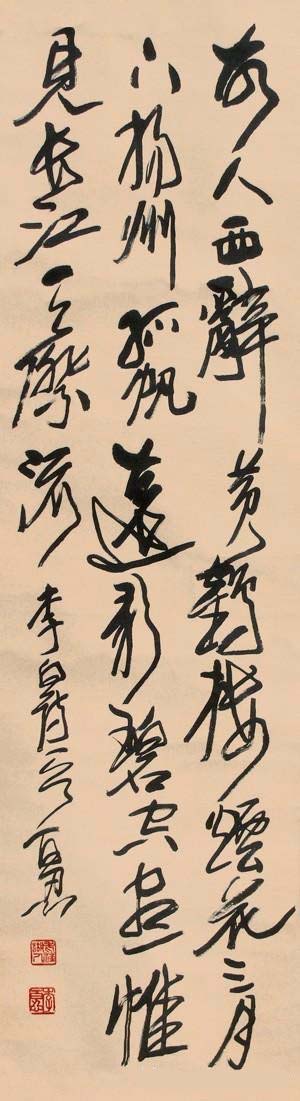 故人西辭黄鶴樓煙花三月
下揚州孤帆遠影碧空盡惟
見長江天際流李白詩一首